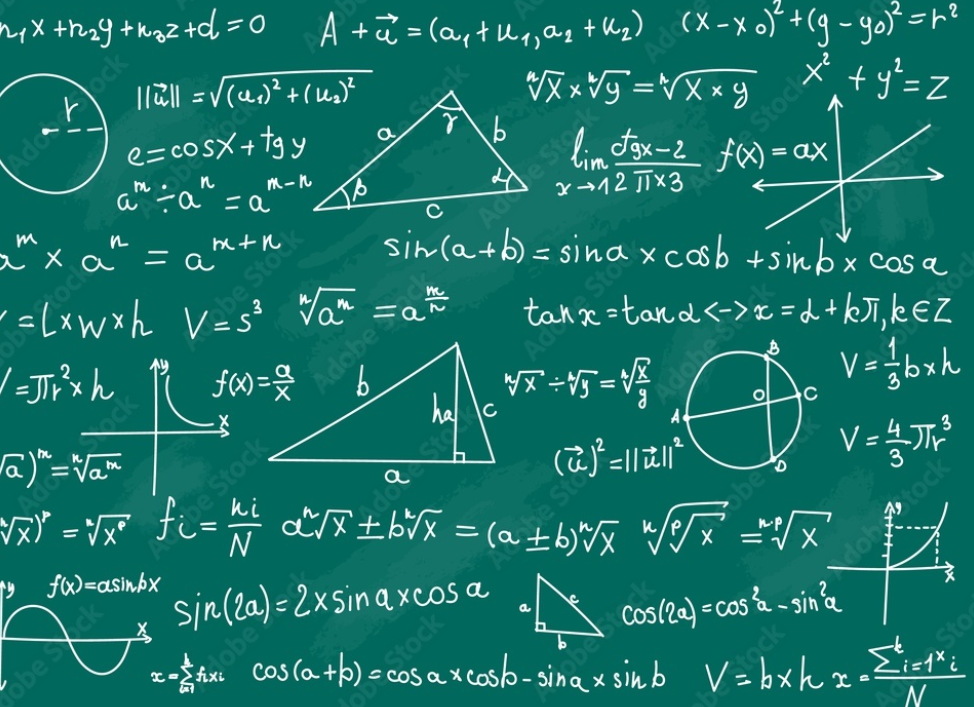 n₁x+n₂y+n₃z+d=0
A+u⃗=(a₁+u₁,a₂+u₂)
(x-x₀)²+(y-y₀)²=r²
r
||u⃗||=√((u₁)²+(u₂)²)
a
γ
b
β
α
c
ⁿ√x×ⁿ√y=ⁿ√x×y
x²+y²=z
e=cosx+tgy
lim x→1 ctgx-2 / 2π×3
f(x)=ax
aᵐ÷aⁿ=aᵐ⁻ⁿ
aᵐ×aⁿ=aᵐ⁺ⁿ
sin(a+b)=sina×cosb+sinb×cosa
V=l×w×h
V=s³
ⁿ√aᵐ=a^(m/n)
tanx=tanα<->x=α+kπ,k∈Z
V=πr²×h
y
x
f(x)=a/x
b
ha
c
a
ⁿ√x÷ⁿ√y=ⁿ√(x/y)
B
O
C
A
D
V=1/3b×h
√a)ᵐ=ⁿ√aᵐ
(u⃗)²=||u⃗||²
V=4/3πr³
ⁿ√x)ᵖ=ⁿ√xᵖ
fi=ni/N
aⁿ√x±bⁿ√x=(a±b)ⁿ√x
ⁿ√ᵖ√x=ⁿ·ᵖ√x
y
x
y
f(x)=asinbx
x
sin(2a)=2×sina×cosa
a
c
b
cos(2a)=cos²a-sin²a
cos(a+b)=cosa×cosb-sina×sinb
V=b×h
Adobe Stock